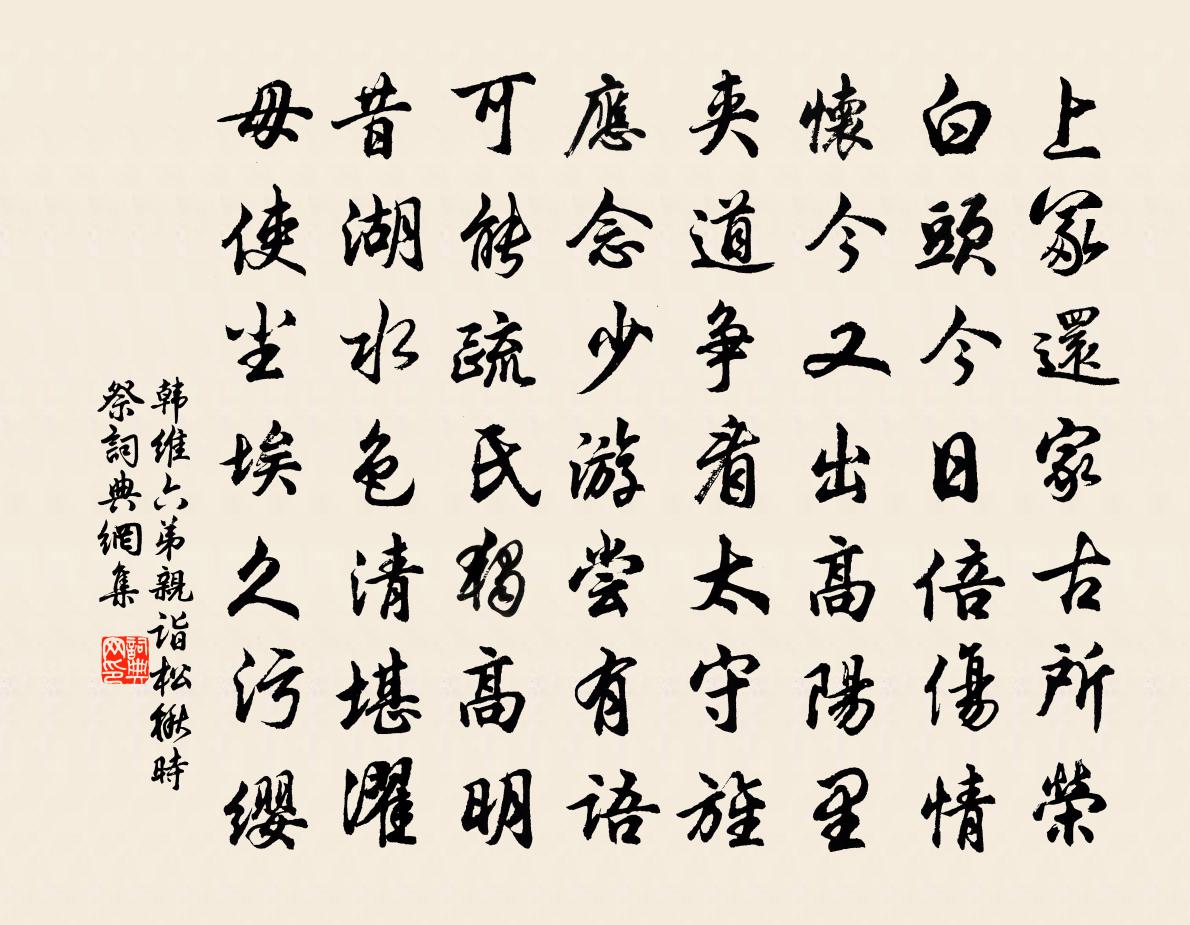 上冢還家古所榮
白頭今日倍傷情
懷今又出高陽里
夾道争看太守旌
應念少游尝有语
可能疏氏獨高明
昔湖水色清堪濯
毋使尘埃久污缨
韩维六弟親诣松楸時
祭詞典網集
詞典网印